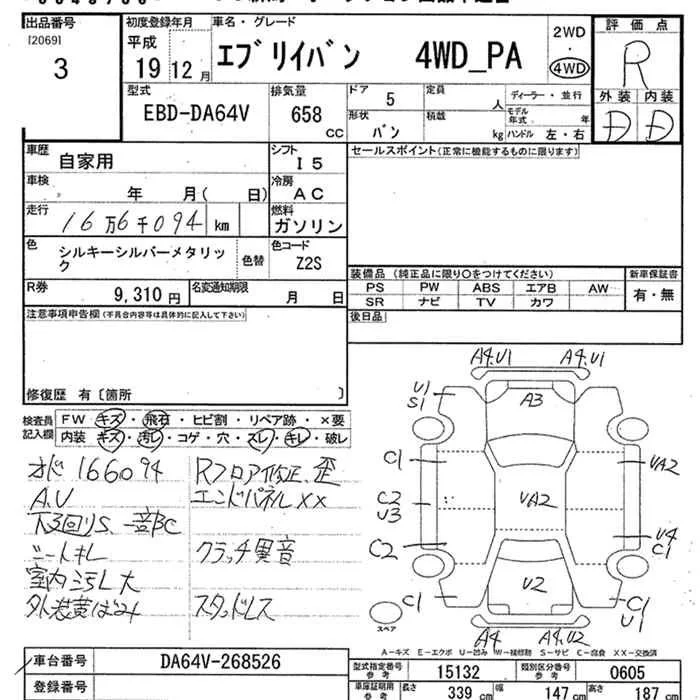 出品番号
[2069]
3
初度登録年月
平成
19 12 月
車名・グレード
エブリイバン 4WD_PA
2WD
・
4WD
評価点
R
外装 内装
D D
型式
EBD-DA64V
排気量
658
CC
ドア
5
定員
人
ディーラー・並行
形状
バン
積載
kg
モデル年式 年
ハンドル 左・右
車歴
自家用
シフト
I5
セールスポイント(正常に機能するものに限ります)
車検
年 月( 日)
冷房
AC
走行
16万6千094 km
燃料
ガソリン
色
シルキーシルバーメタリック
色替
色コード
Z2S
装備品 (純正品に限り○をつけてください)
新車保証書
PS PW ABS エアB AW
有・無
SR ナビ TV カワ
R券
9,310 円
名変通知期限
月 日
後日品
注意事項申告欄(不具合内容等は具体的に記入して下さい)
修復歴 有〔箇所 〕
検査員
記入欄
FW キズ・飛石・ヒビ割・リペア跡・×要
内装 キズ・汚レ・コゲ・穴・スレ・キレ・破レ
オド 166094
A.U
下回りS、一部C
シートキレ
室内汚レ大
Rフロア修正、歪
エンドパネルXX
クラッチ異音
スタッドレス
A4.U1 A4.U1
U1
S1
A3
C1
UA2
C2
U3
UA2
C2
U4
C1
U2
C1
C1
U1
A4
A4.U2
スペア
A－キズ E－エクボ U－凹み W－補修跡 S－サビ C－腐食 XX－交換済
車台番号
DA64V-268526
登録番号
型式指定番号
参考
15132
類別区分番号
参考
0605
車庫証明用
参考
長さ
339 cm
幅
147 cm
高さ
187 cm